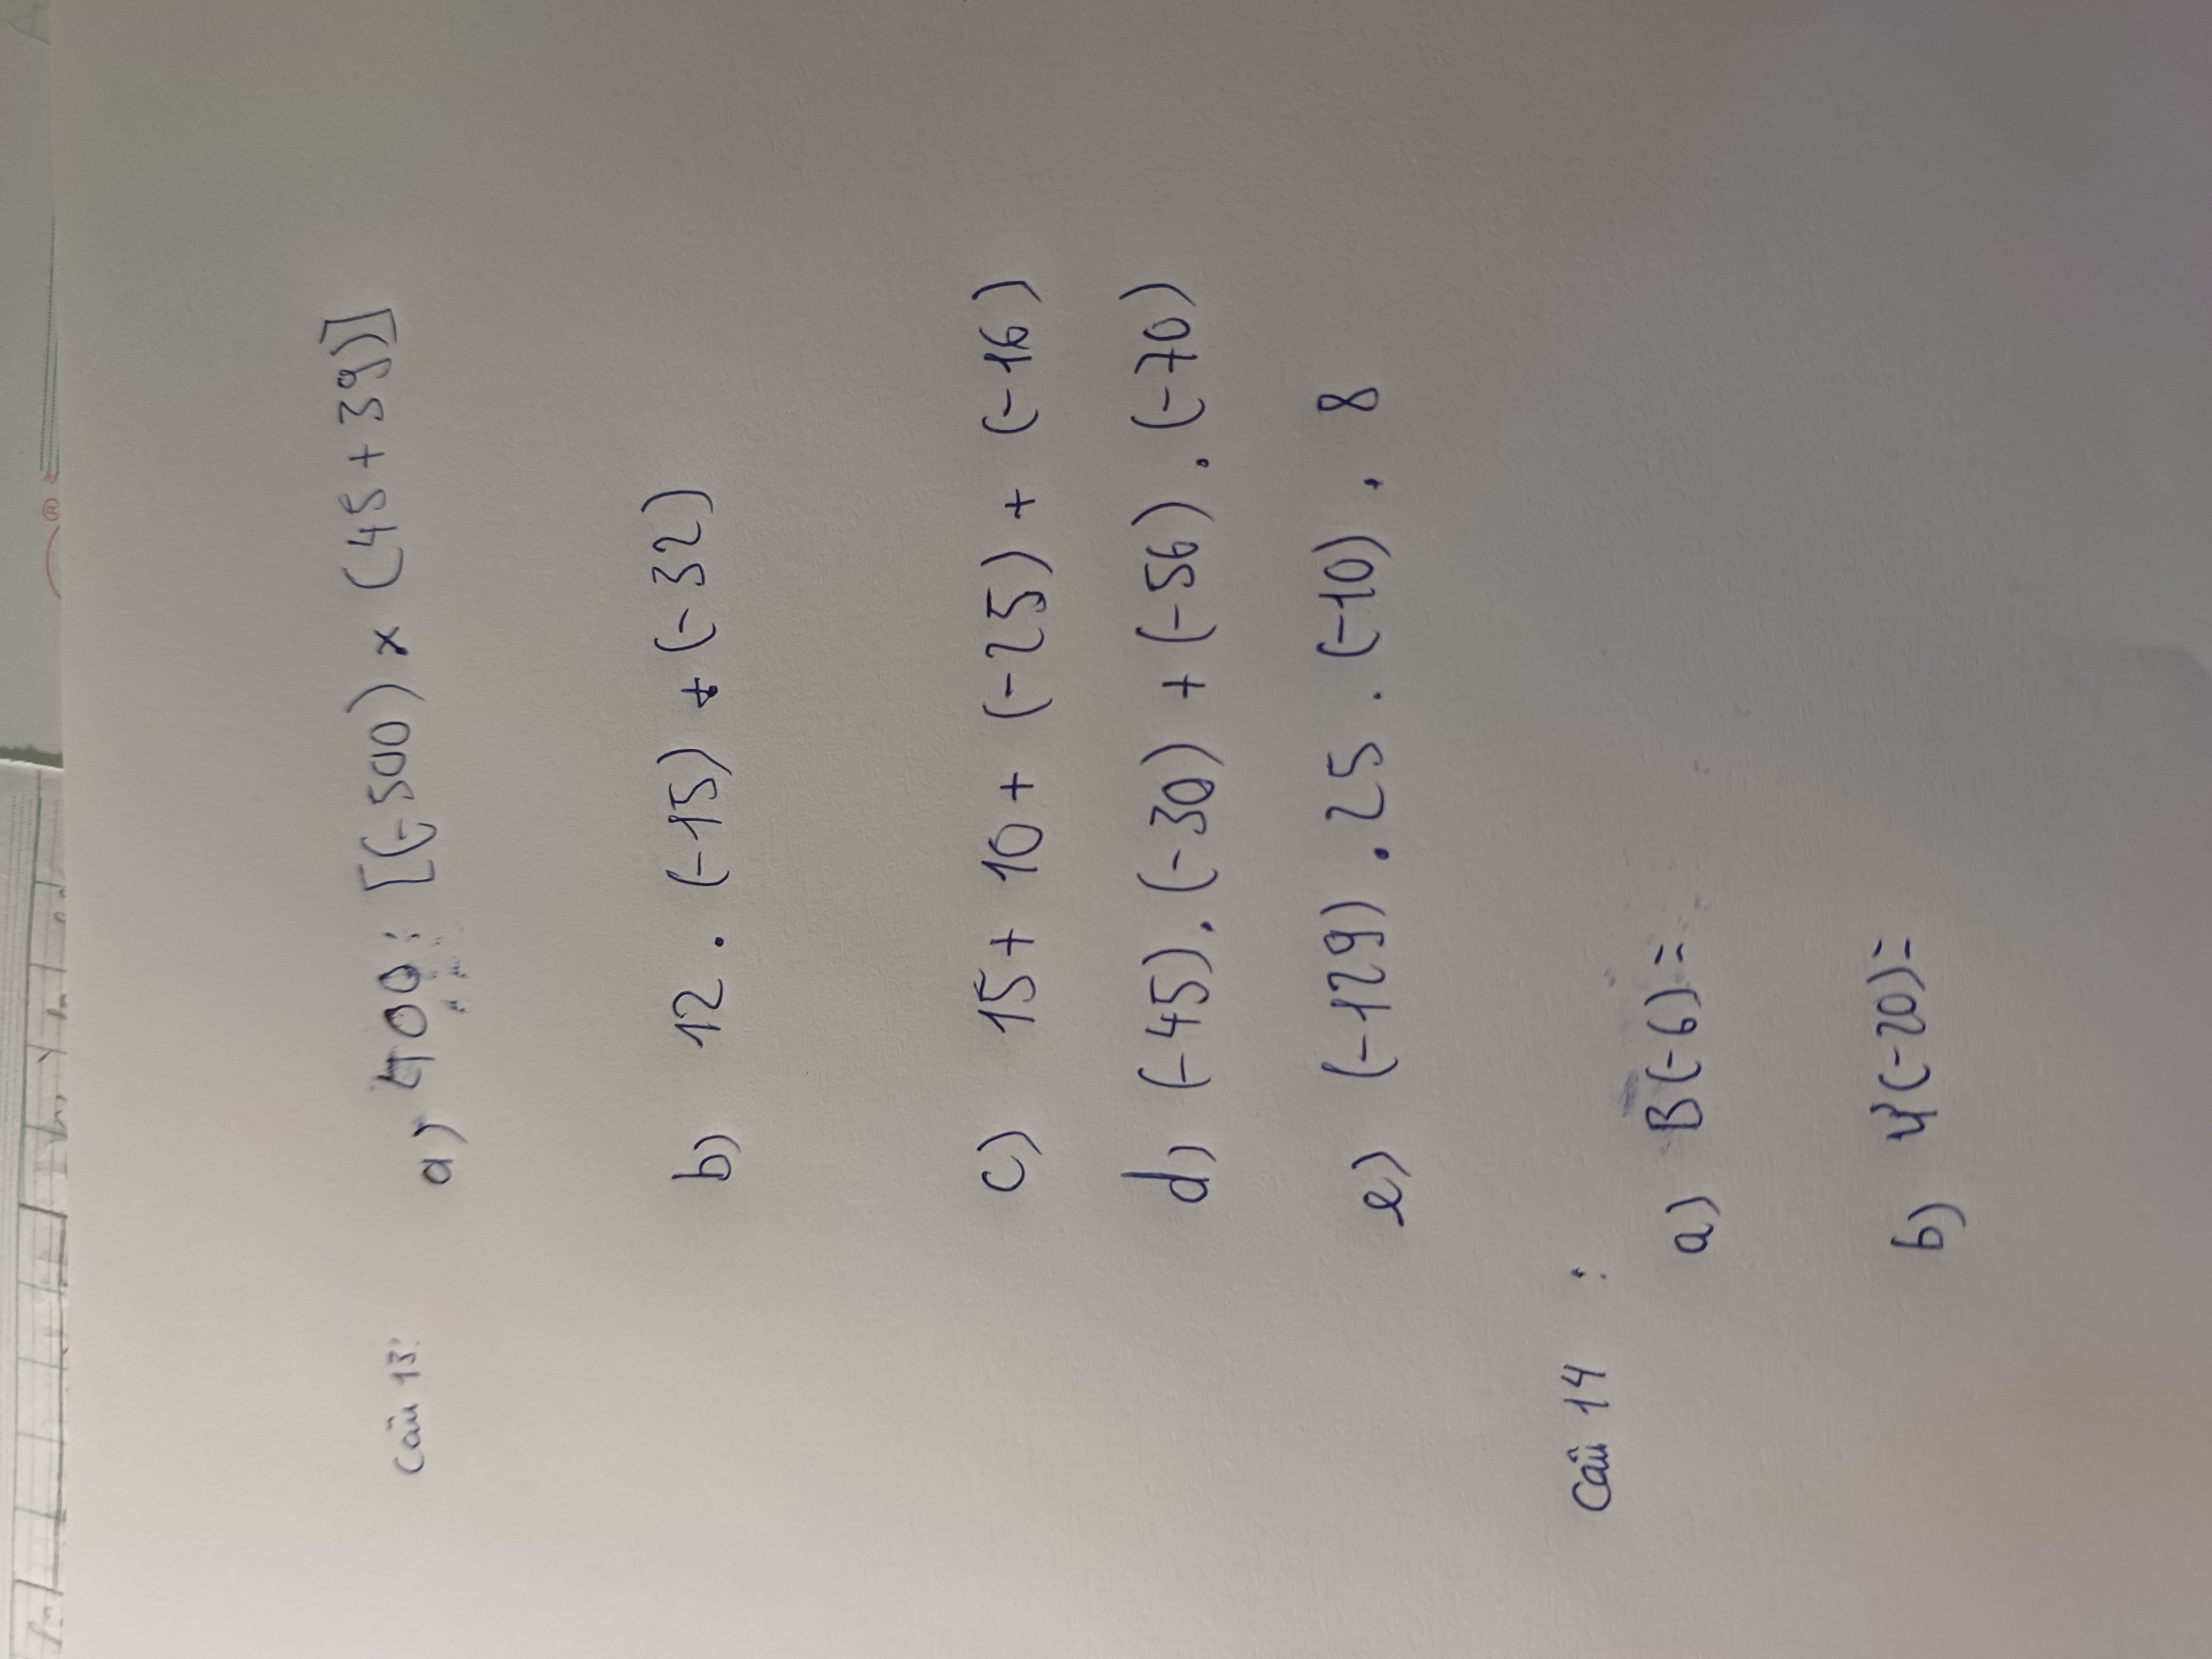 Câu 13:
a) 400 : [(-500) x (45 + 39)]
b) 12 . (-15) + (-32)
c) 15 + 10 + (-25) + (-16)
d) (-45) . (-30) + (-56) . (-70)
e) (-129) . 25 . (-10) . 8
Câu 14 :
a) B(-6) =
b) Ư(-20) =